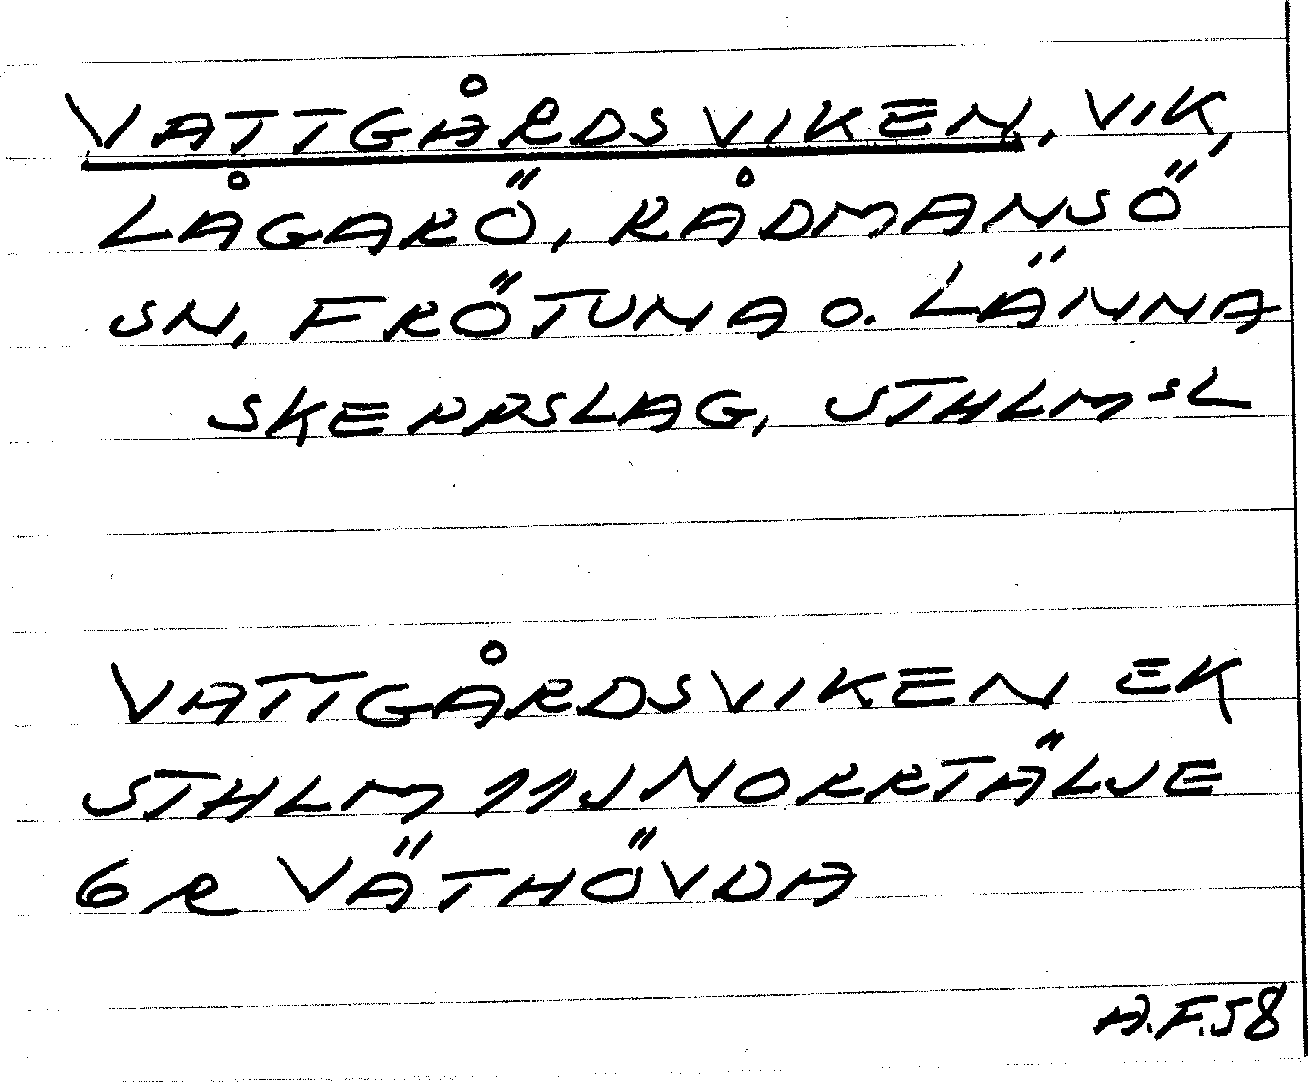 VATTGÅRDSVIKEN, VIK,
LÅGARÖ, RÅDMANSÖ
SN, FRÖTUNA O. LÄNNA
SKEPPSLAG, STHLMSL
VATTGÅRDSVIKEN EK
STHLM 11J NORRTÄLJE
6 R VÄTHÖVDA
A.F.58